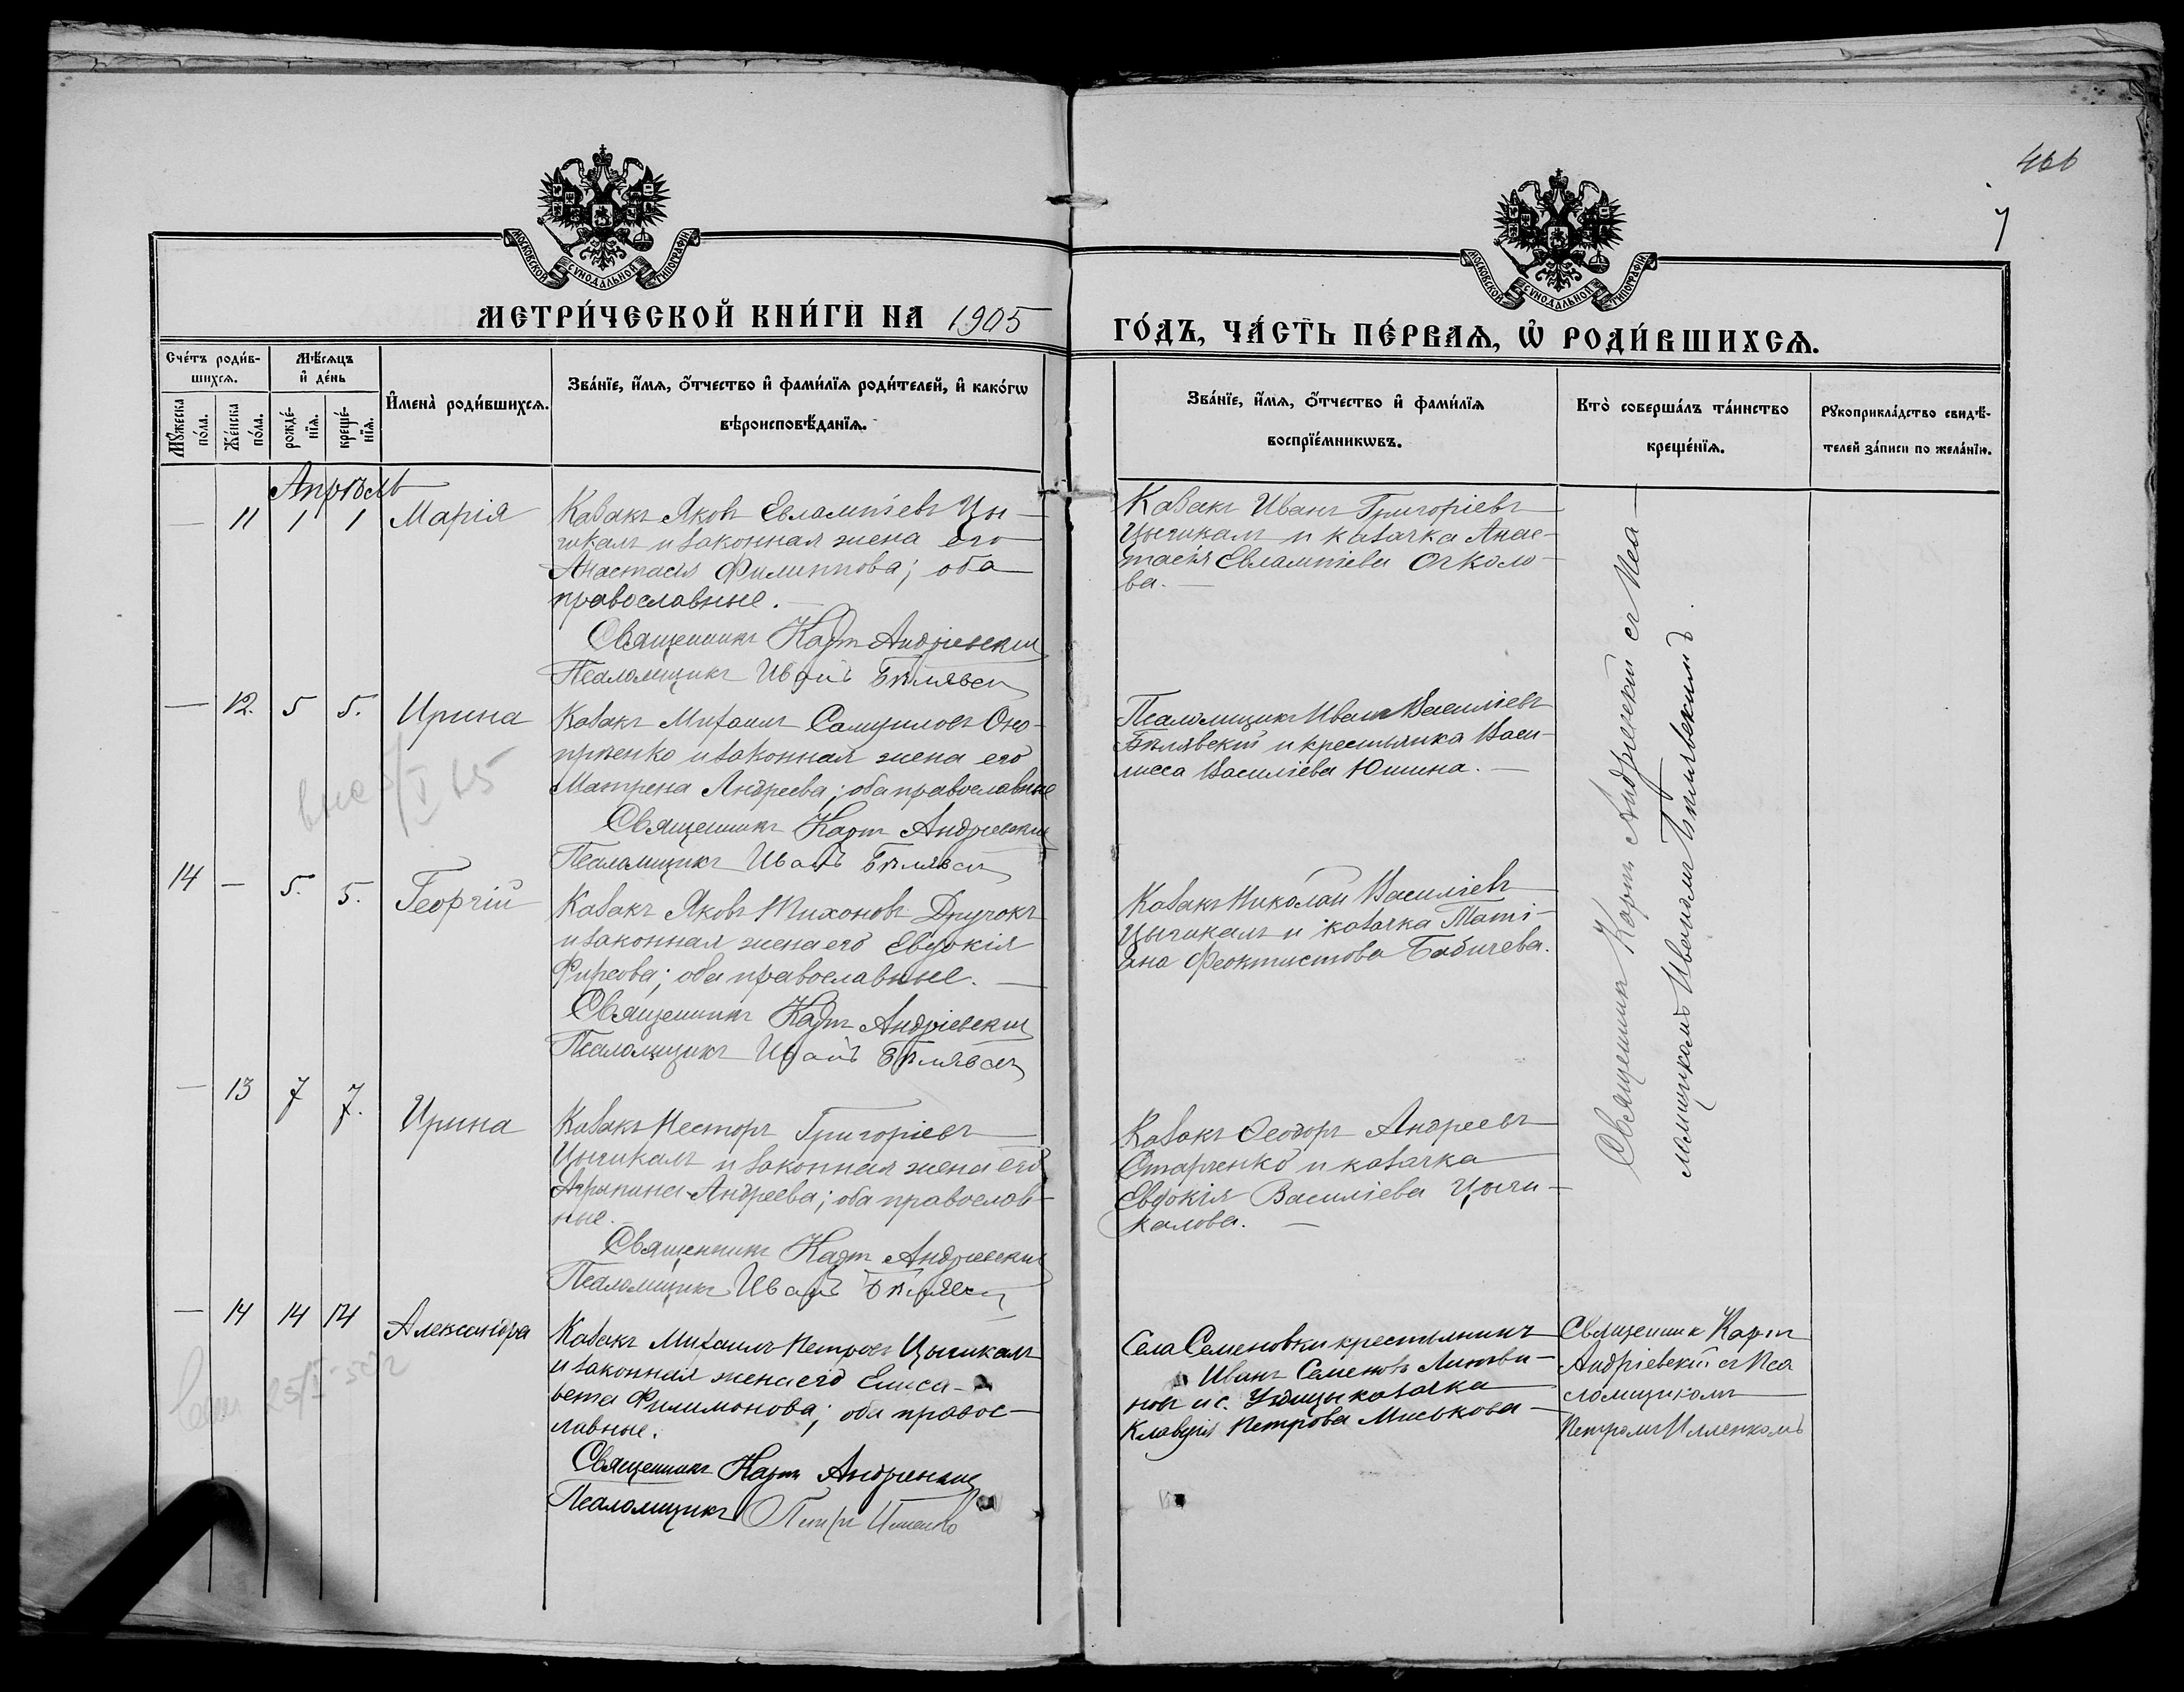 466
7
МОСКОВСКОЙ СѴНОДАЛЬНОЙ ТИПОГРАФІИ
МОСКОВСКОЙ СѴНОДАЛЬНОЙ ТИПОГРАФІИ
МЕТРИ́ЧЕСКОЙ КНИ́ГИ НА 1905
ГО́ДЪ, ЧА́СТЬ ПЕ́РВАѦ, Ѡ҆ РОДИ́ВШИХСѦ.
Сче́тъ роди́в-
шихсѧ.
Мꙋ́жеска по́ла.
Же́нска по́ла.
Мѣ́сѧцъ
и҆ де́нь
рожде́-
нїѧ.
креще́-
нїѧ.
И҆мена̀ роди́вшихсѧ.
Зва́нїе, и҆́мѧ, ѻ҆́тчество и҆ фами́лїѧ роди́телей, и҆ како́гѡ
вѣроисповѣ́данїѧ.
Зва́нїе, и҆́мѧ, ѻ҆́тчество и҆ фами́лїѧ
воспрїе́мникѡвъ.
Кто̀ соверша́лъ та́инство
креще́нїѧ.
Рꙋкоприкла́дство свидѣ́-
телей за́писи по жела́нїю.
Апрѣль
— 11 1 1 Марія
Козакъ Яковъ Евлампіевъ Цы-
чикалъ и законная жена его
Анастасія Филиппова; оба
православные.
Священникъ Карпъ Андріевскій
Псаломщикъ Иванъ Бѣлявск
Козакъ Иванъ Григоріевъ
Цычикалъ и козачка Анас-
тасія Евлампіева
ва.
— 12. 5 5. Ирина
Козакъ Михаилъ Самуиловъ Оно-
пріенко и законная жена его
Матрена Андреева; оба православные
Священникъ Карпъ Андріевскій
Псаломщикъ Иванъ Бѣлявск
Псаломщикъ Иванъ Василіевъ
Бѣлявскій и крестьянка Васи-
лисса Василіева Юшина.
14 — 5. 5. Георгій
Козакъ Яковъ Тихоновъ Дручокъ
и законная жена его Евдокія
Фирсова; оба православные.
Священникъ Карпъ Андріевскій
Псаломщикъ Иванъ Бѣлявск
Козакъ Николай Василіевъ
Цычикалъ и козачка Таті-
ана Феоктистова Бабичева.
— 13 7 7. Ирина
Козакъ Несторъ Григоріевъ
Цычикалъ и законная жена его
Агрипина Андреева; оба православ-
ные.
Священникъ Карпъ Андріевскій
Псаломщикъ Иванъ Бѣлявск
Козакъ Ѳеодоръ Андреевъ
Старченко и козачка
Евдокія Василіева Цычи-
калова.
Священникъ Карпъ Андріевскій съ Пса-
ломщикомъ Иваномъ Бѣлявскимъ.
— 14 14 14 Александра
Козакъ Михаилъ Петровъ Цычикалъ
и законная жена его Елиса-
вета Филимонова; оба правос-
лавные.
Священникъ Карпъ Андріевскій
Псаломщикъ Петръ Илленко
Села Семеновки крестьянинъ
Иванъ Семеновъ Литви-
новъ и с. козачка
Клавдія Петрова Миськова
Священник Карпъ
Андріевскій съ Пса
ломщикомъ
Петромъ Илленкомъ